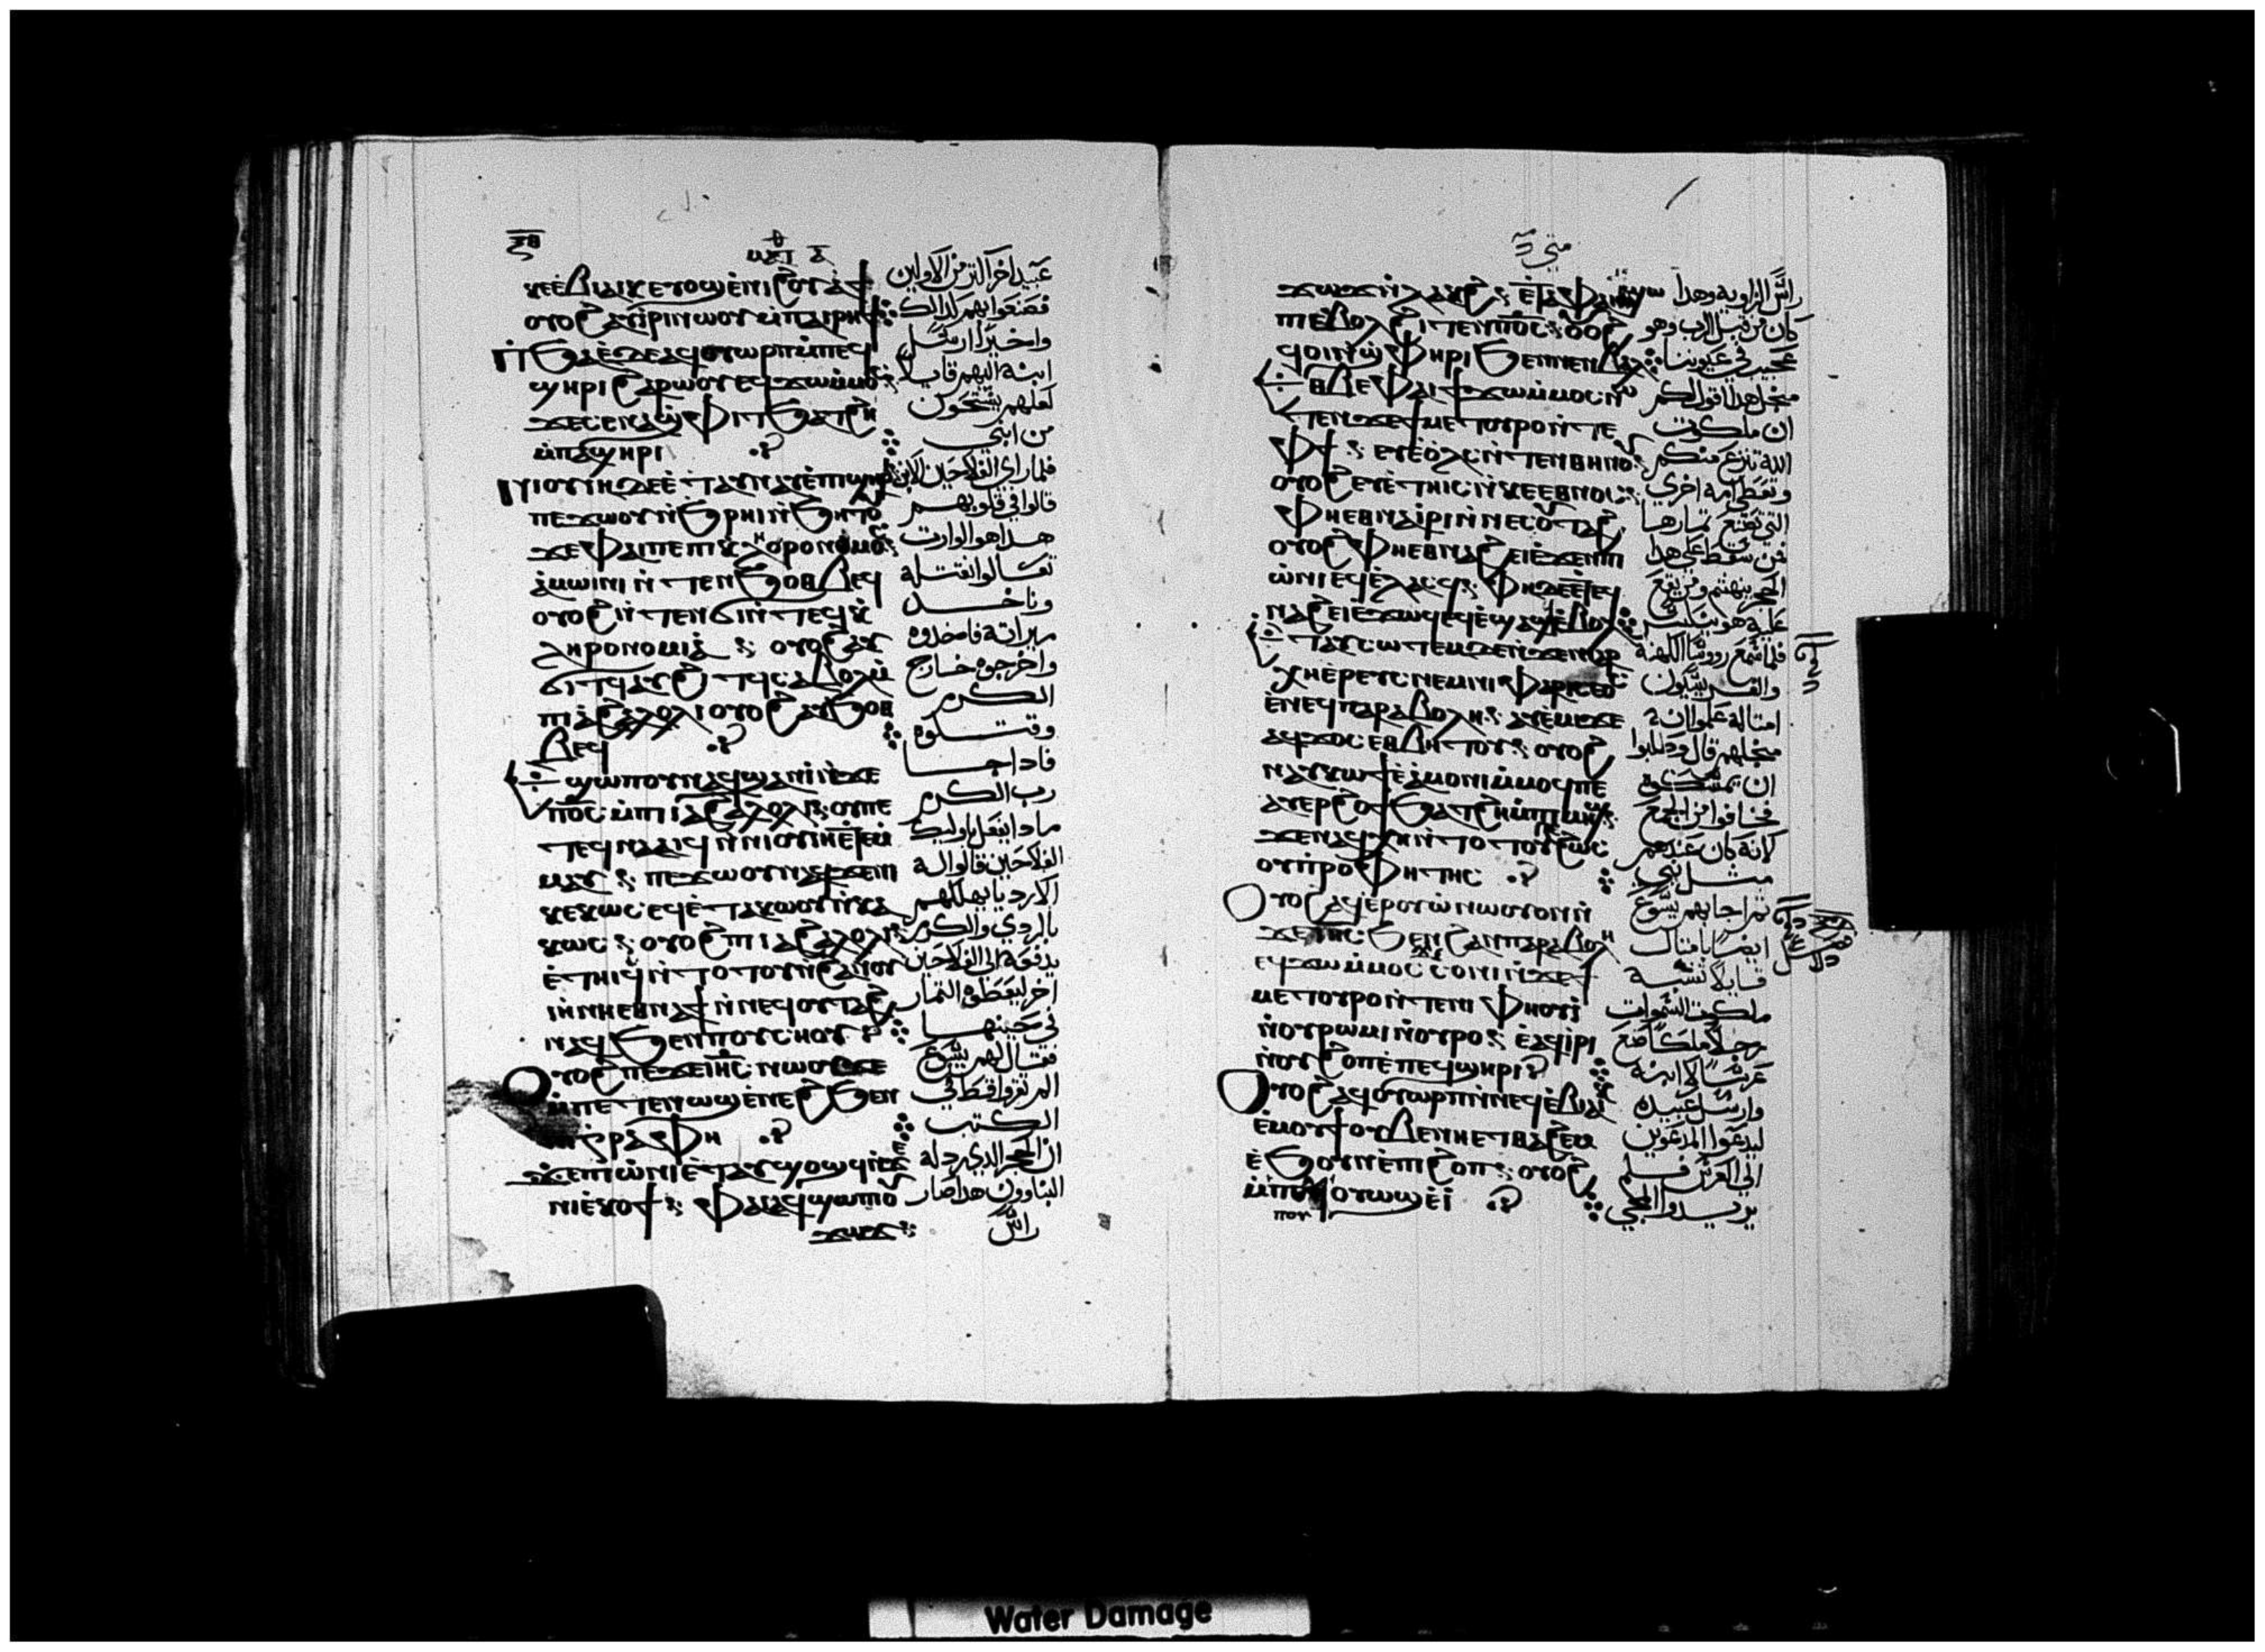 ⲝⲑ
ⲙⲁⲧ ⲁ
ⲕⲉⲉ̀ⲃⲓⲁⲓⲕ ⲉⲩⲟϣ ⲉ̀ⲛⲓϩⲟⲩⲁϯ
ⲟⲩⲟϩ ⲁⲩⲓ̀ⲣⲓ ⲛⲱⲟⲩ ⲙ̀ⲡⲁⲓⲣⲏϯ
ⲉ̀ⲡϧⲁⲉ̀ ⲇⲉ ⲁϥⲟⲩⲱⲣⲡ ⲙ̀ⲡⲉϥ
ϣⲏⲣⲓ ϩⲁⲣⲱⲟⲩ ⲉϥϫⲱ ⲙ̀ⲙⲟⲥ
ϫⲉ ⲥⲉⲛⲁϣⲫⲓⲧ ϧⲁⲧϩⲏ
ⲙ̀ⲡⲁϣⲏⲣⲓ
ⲛⲓⲟⲩⲓⲏ ⲇⲉ ⲉ̀ⲧⲁⲩⲛⲁⲩ ⲉ̀ⲡϣⲏⲣⲓ
ⲡⲉϫⲱⲟⲩ ⲛ̀ϧⲣⲏⲓ ⲛ̀ϧⲏⲧⲟⲩ
ϫⲉ ⲫⲁⲓ ⲡⲉ ⲡⲓⲕⲗⲏⲣⲟⲛⲟⲙⲟⲥ
ⲁ̀ⲙⲱⲓⲛⲓ ⲛ̀ⲧⲉⲛϧⲟⲑⲃⲉϥ
ⲟⲩⲟϩ ⲛ̀ⲧⲉⲛϭⲓ ⲛ̀ⲧⲉϥⲕ̀
ⲗⲏⲣⲟⲛⲟⲙⲓⲁ̀ ⲟⲩⲟϩ ⲁⲩ
ϭⲓⲧϥ ⲁⲩϩⲓⲧϥ ⲥⲁⲃⲟⲗ ⲙ̀
ⲡⲓⲁ̀ϩⲁⲗⲟⲗⲓ ⲟⲩⲟϩ ⲁⲩϧⲟⲑ
ⲃⲉϥ
ⲉ̀ϣⲱⲡ ⲟⲩⲛ ⲁϥϣⲁⲛⲓ̀ ⲛ̀ϫⲉ
ⲡϭⲟⲓⲥ ⲙ̀ⲡⲓⲁ̀ϩⲁⲗⲟⲗⲓ ⲟⲩ ⲡⲉ
ⲧⲉϥⲛⲁⲁⲓϥ ⲛ̀ⲛⲓⲟⲩⲓⲏ ⲉ̀ⲧⲉⲙ̀
ⲙⲁⲩ ⲡⲉϫⲱⲟⲩ ⲛⲁϥ ϫⲉ ⲛⲓ
ⲕⲉⲕⲱⲥ ⲉϥⲉ̀ⲧⲁⲕⲱⲟⲩ ⲛ̀ⲕⲁ
ⲕⲱⲥ ⲟⲩⲟϩ ⲡⲓⲁ̀ϩⲁⲗⲟⲗⲓ
ⲉ̀ⲧⲏⲓϥ ⲛ̀ⲧⲟⲧⲟⲩ ⲛ̀ϩⲁⲛⲟⲩ
ⲓⲏ ⲛⲏⲉⲑⲛⲁϯ ⲛ̀ⲛⲉϥⲟⲩⲧⲁϩ
ⲛⲁϥ ϧⲉⲛ ⲡⲟⲩⲥⲛⲟⲩ
ⲟⲩⲟϩ ⲡⲉϫⲉ ⲓⲏⲥ ⲛⲱⲟⲩ ϫⲉ
ⲙ̀ⲡⲉⲧⲉⲛⲱϣ ⲉ̀ⲛⲉϩ ϧⲉⲛ
ⲛⲓⲅⲣⲁⲫⲏ
ϫⲉ ⲡⲓⲱ̀ⲛⲓ ⲉ̀ⲧⲁⲩϣⲟϣϥ ⲛ̀ϫⲉ
ⲛⲓⲉ̀ⲕⲟϯ ⲫⲁⲓ ⲁϥϣⲱⲡⲓ ⲟⲩ
ϫⲱϫ
عبيد اخر اكتر من الاولين
فصنعوا بهم كدالك
واخيرا ارسل
ابنه اليهم قايلا
لعلهم يستحون
من ابني
فلما راي الفلاحين الابن
قالوا في قلوبهم
هدا هو الوارت
تعالوا نقتله
وناخد
ميراته فاخدوه
واخرجوه خارج
الكرم
وقتلوه
فادا جا
رب الكرم
مادا يفعل باوليك
الفلاحين قالوا له
الاردياء يهلكهم
بالردي والكرم
يدفعه الي الفلاحين
اخر ليعطوه التمار
في حينها
فقال لهم يسوع
الم تقروا قط في
الكتب
ان الحجر الدي ردله
البناوون هدا صار
راس
متي
ϫⲱϫ ⲛ̀ⲗⲁⲕϩ ⲉ̀ⲧⲁ ⲫⲁⲓ ϣⲱ
ⲡⲓ ⲉ̀ⲃⲟⲗ ϩⲓⲧⲉⲛ ⲡϭⲟⲓⲥ ⲟⲩⲟϩ
ϥⲟⲓ ⲛ̀ϣ̀ⲫⲏⲣⲓ ϧⲉⲛ ⲛⲉⲛⲃⲁⲗ
ⲉⲑⲃⲉ ⲫⲁⲓ ϯϫⲱ ⲙ̀ⲙⲟⲥ ⲛⲱ
ⲧⲉⲛ ϫⲉ ϯⲙⲉⲧⲟⲩⲣⲟ ⲛ̀ⲧⲉ
ⲫϯ ⲉⲩⲉ̀ⲟⲗⲥ ⲛ̀ⲧⲉⲛⲑⲏⲛⲟⲩ
ⲟⲩⲟϩ ⲉⲩⲉ̀ⲧⲏⲓⲥ ⲛ̀ⲕⲉⲉⲑⲛⲟⲥ
ⲫⲏⲉⲑⲛⲁⲓ̀ⲣⲓ ⲛ̀ⲛⲉⲥⲟⲩⲧⲁϩ
ⲟⲩⲟϩ ⲫⲏⲉⲑⲛⲁϩⲉⲓ ⲉ̀ϫⲉⲛ ⲡⲓ
ⲱ̀ⲛⲓ ⲉϥⲉ̀ⲗⲁⲥϥ ⲫⲏ ⲇⲉ ⲉ̀ⲧⲉϥ
ⲛⲁϩⲉⲓ ⲉ̀ϫⲱϥ ⲉϥⲉ̀ϣⲁϣϥ ⲉ̀ⲃⲟⲗ
ⲉ̀ⲧⲁⲩⲥⲱⲧⲉⲙ ⲇⲉ ⲛ̀ϫⲉ ⲛⲓⲁⲣ
ⲭⲏⲉ̀ⲣⲉⲩⲥ ⲛⲉⲙ ⲛⲓⲫⲁⲣⲓⲥⲉⲟⲥ
ⲉ̀ⲛⲉϥⲡⲁⲣⲁⲃⲟⲗⲏ ⲁⲩⲉⲙⲓ ϫⲉ
ⲁϥϫⲟⲥ ⲉⲑⲃⲏⲧⲟⲩ ⲟⲩⲟϩ
ⲛⲁⲩⲕⲱϯ ⲉ̀ⲁ̀ⲙⲟⲛⲓ ⲙ̀ⲙⲟϥ ⲡⲉ
ⲁⲩⲉⲣϩⲟϯ ϧⲁⲧϩⲏ ⲙ̀ⲡⲓⲙⲏϣ
ϫⲉ ⲛⲁϥⲭⲏ ⲛ̀ⲧⲟⲧⲟⲩ ϩⲱⲥ
ⲟⲩⲡ̀ⲣⲟⲫⲏⲧⲏⲥ
ⲟⲩⲟϩ ⲁϥⲉ̀ⲣⲟⲩⲱ̀ ⲛⲱⲟⲩ ⲟⲛ ⲛ̀
ϫⲉ ⲓⲏⲥ ϧⲉⲛ ϩⲁⲛⲡⲁⲣⲁⲃⲟⲗⲏ
ⲉϥϫⲱ ⲙ̀ⲙⲟⲥ ⲥⲟⲛⲓ ⲛ̀ϫⲉ ϯ
ⲙⲉⲧⲟⲩⲣⲟ ⲛ̀ⲧⲉ ⲛⲓⲫⲏⲟⲩⲓ̀
ⲛ̀ⲟⲩⲣⲱⲙⲓ ⲛ̀ⲟⲩⲣⲟ ⲉ̀ⲁϥⲓ̀ⲣⲓ
ⲛ̀ⲟⲩϩⲟⲡ ⲉ̀ⲡⲉϥϣⲏⲣⲓ
ⲟⲩⲟϩ ⲁϥⲟⲩⲱⲣⲡ ⲛ̀ⲛⲉϥⲉ̀ⲃⲓⲁⲓⲕ
ⲉ̀ⲙⲟⲩϯ ⲟⲩⲃⲉ ⲛⲏⲉⲧⲑⲁϩⲉⲙ
ⲉ̀ϧⲟⲩⲛ ⲉ̀ⲡⲓϩⲟⲡ ⲟⲩⲟϩ
ⲙ̀ⲡⲟⲩⲟⲩⲱϣ ⲉ̀ⲓ̀
ⲡⲟⲩ
راس الزاوية وهدا
كان من قبل الرب وهو
عجيب في عيوننا
من اجل هدا اقول لكم
ان ملكوت
الله تنزع منكم
وتعطي امة اخري
التي تصنع تمارها
فمن سقط علي هدا
الحجر يتهشم ومن يقع
عليه هو
فلما سمع رووسا الكهنة
والفريسيون
امتاله علموا انه
من اجلهم قال وطلبوا
ان يمسكوه
فخافوا من الجمع
لانه كان عندهم
متل نبي
تم اجابهم يسوع
ايضا بامتال
قايلا تشبه
ملكوت السموات
رجلا ملكا صنع
عرسا لابنه
وارسل عبيده
ليدعوا المدعوين
الي العرس فلم
يريدوا المجي